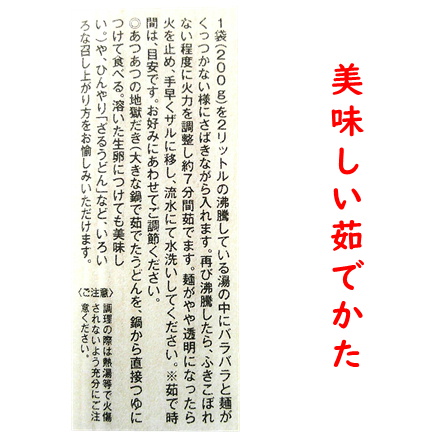 美味しい茹でかた
1袋(200g)を2リットルの沸騰している湯の中にバラバラと麺が
くっつかない様にさばきながら入れます。再び沸騰したら、ふきこぼれ
ない程度に火力を調整し約7分間茹でます。麺がやや透明になったら
火を止め、手早くザルに移し、流水にて水洗いしてください。※茹で時
間は、目安です。お好みにあわせてご調節ください。
◎あつあつの地獄だき(大きな鍋で茹でたうどんを、鍋から直接つゆに
つけて食べる。溶いた生卵につけても美味し
い。)や、ひんやり「ざるうどん」など、いろい
ろな召し上がり方をお愉しみいただけます。
〈ご注意〉調理の際は熱湯等で火傷
されないよう充分にご注
意ください。